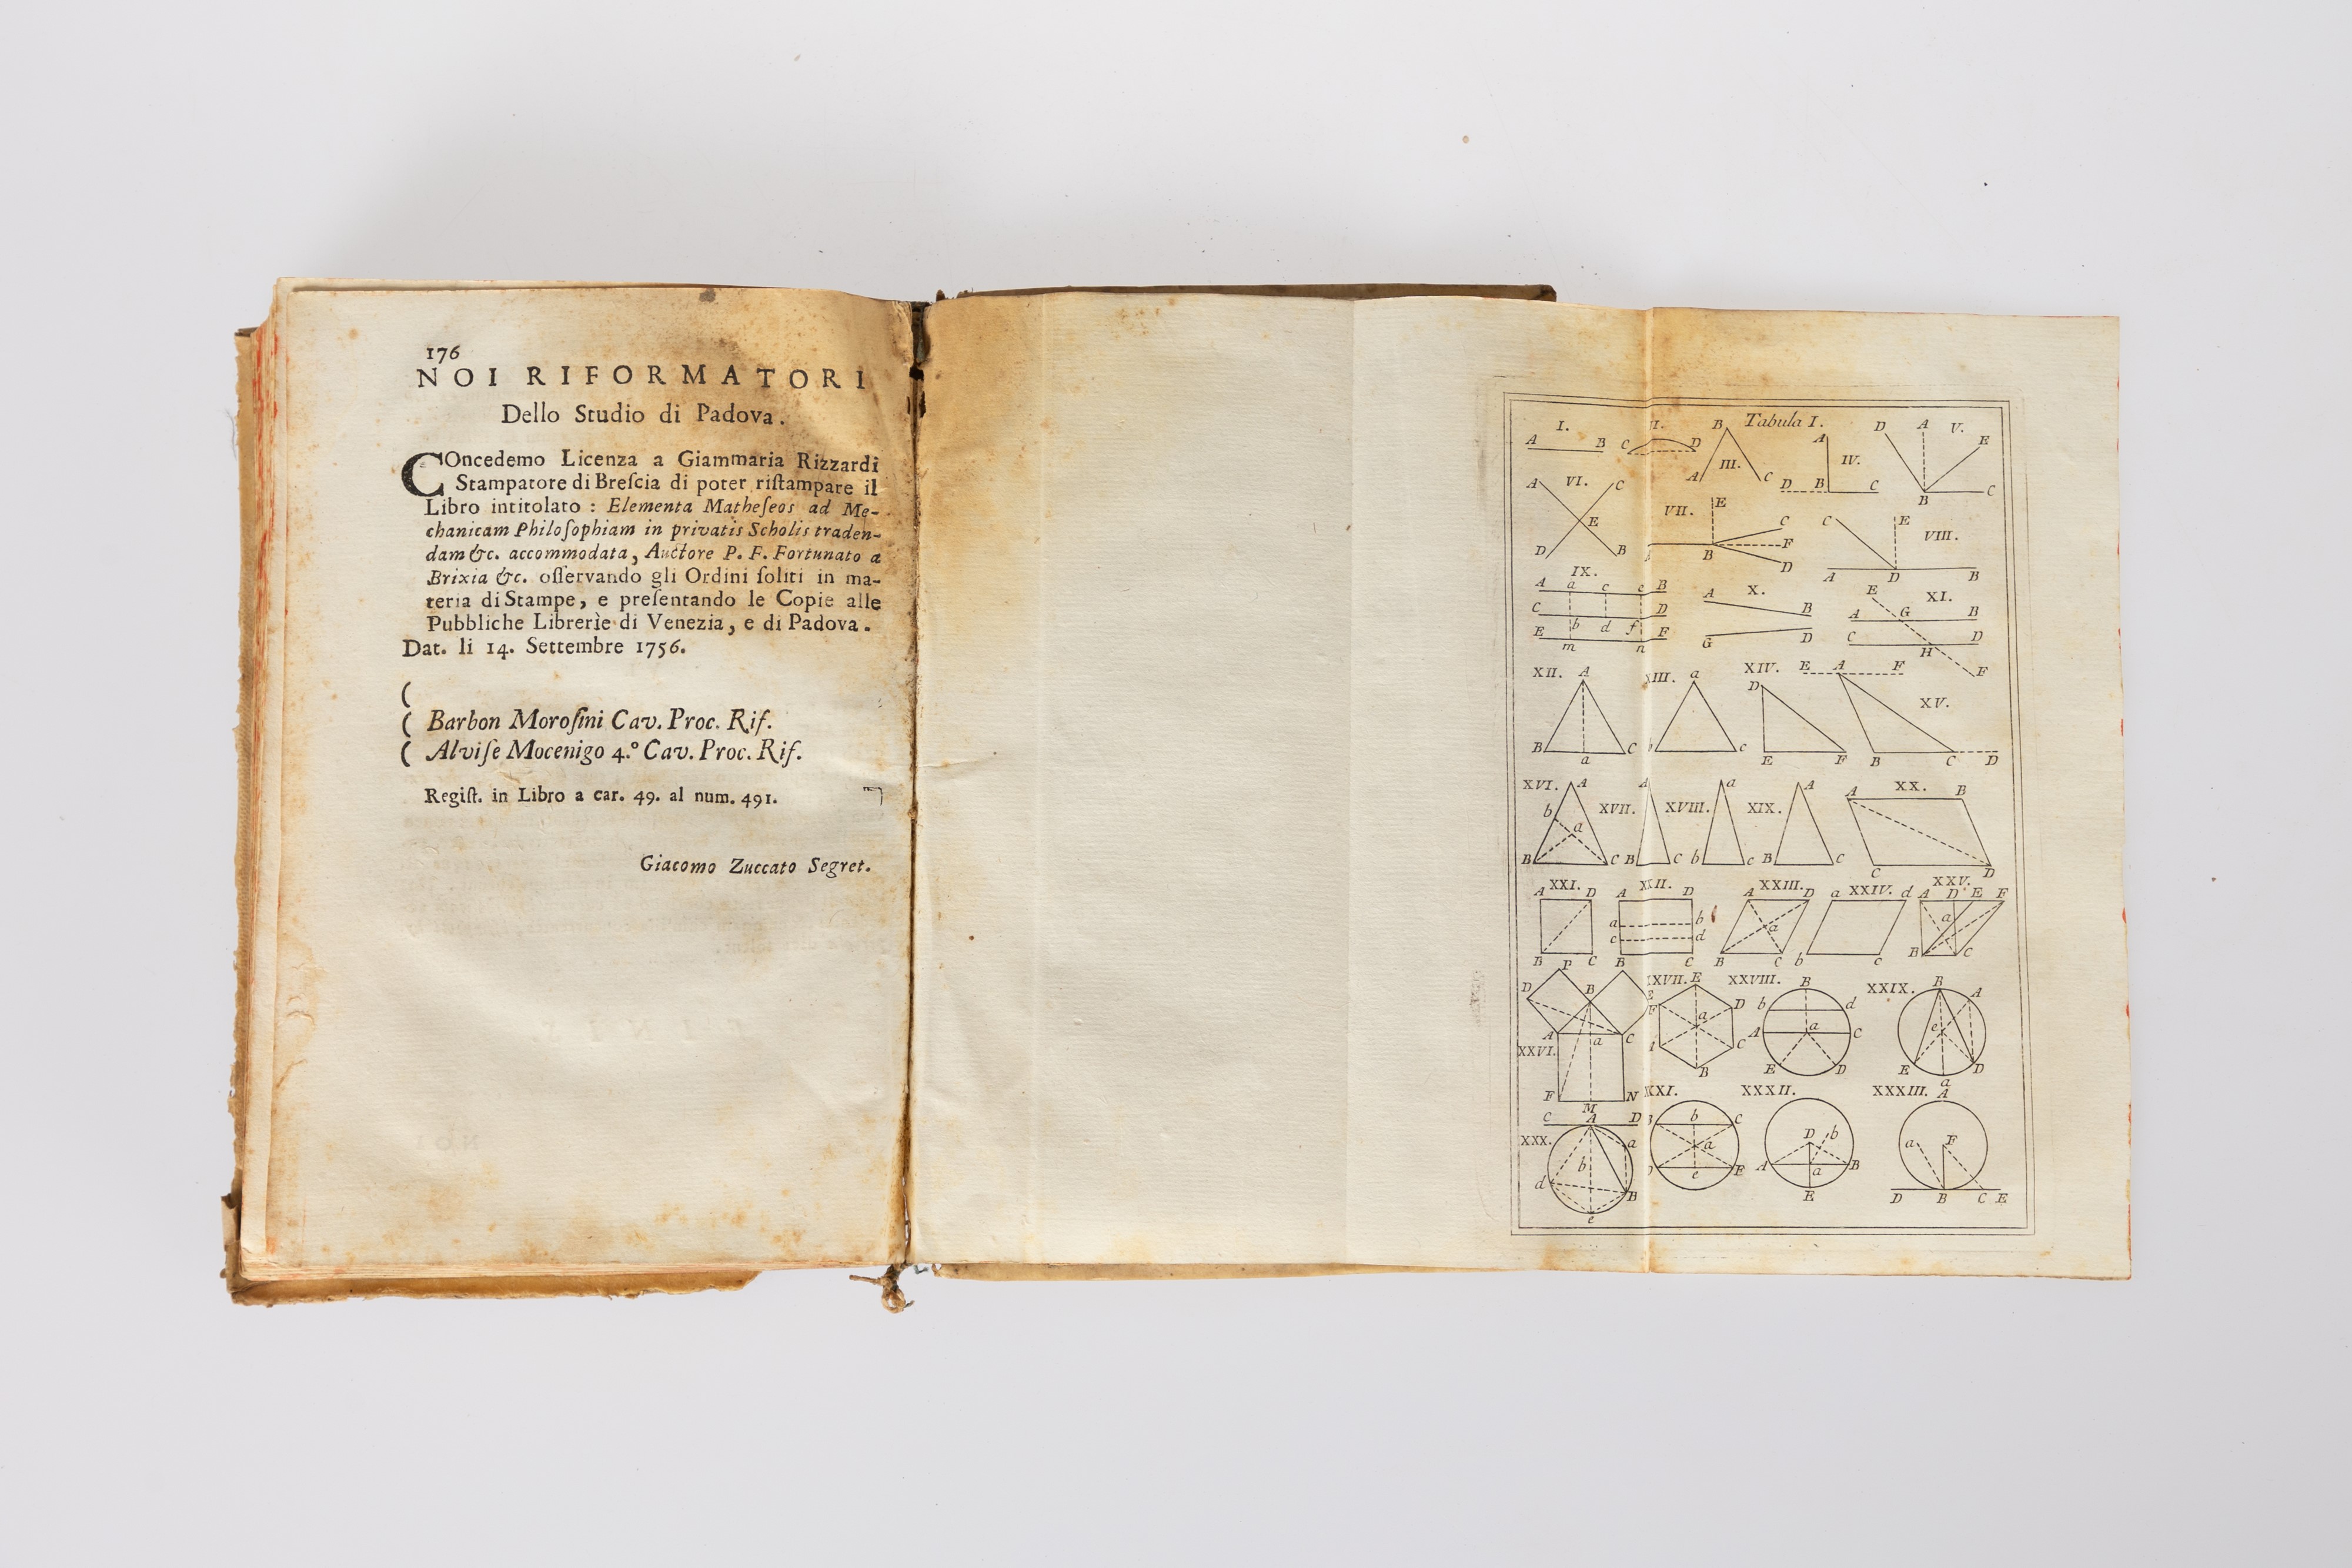 176
NOI RIFORMATORI
Dello Studio di Padova.
COncedemo Licenza a Giammaria Rizzardi
Stampatore di Breſcia di poter riſtampare il
Libro intitolato : Elementa Matheſeos ad Me-
chanicam Philoſophiam in privatis Scholis traden-
dam &c. accommodata, Auctore P. F. Fortunato a
Brixia &c. oſſervando gli Ordini ſoliti in ma-
teria di Stampe, e preſentando le Copie alle
Pubbliche Librerìe di Venezia, e di Padova.
Dat. li 14. Settembre 1756.
(
( Barbon Moroſini Cav. Proc. Rif.
( Alviſe Mocenigo 4.º Cav. Proc. Rif.
Regiſt. in Libro a car. 49. al num. 491.
Giacomo Zuccato Segret.
Tabula I.
I. A B
C D
III. B A C
IV. A D B C
V. D A E B C
VI. A C E D B
VII. E C F B D
VIII. C E A D B
IX. A a c e B C D E b d f F m n
X. A B G D
XI. E A G B C D H F
XII. A B C a
XIII. a b c
XIV. D E F
XV. E A F B C D
XVI. A b a B C
XVII. A B C
XVIII. a b c
XIX. A B C
XX. A B C D
XXI. A D B C
XXII. A D a b c d B C
XXIII. A D a B C
XXIV. a d b c
XXV. A D E F a B C
XXVI. P D B E A a C F M N
XXVII. E F D a C B
XXVIII. B b d A a C E D
XXIX. B A e E D a
XXX. C A D a b d B e
XXXI. b C a e E
XXXII. D b A a B E
XXXIII. A a F D B C E